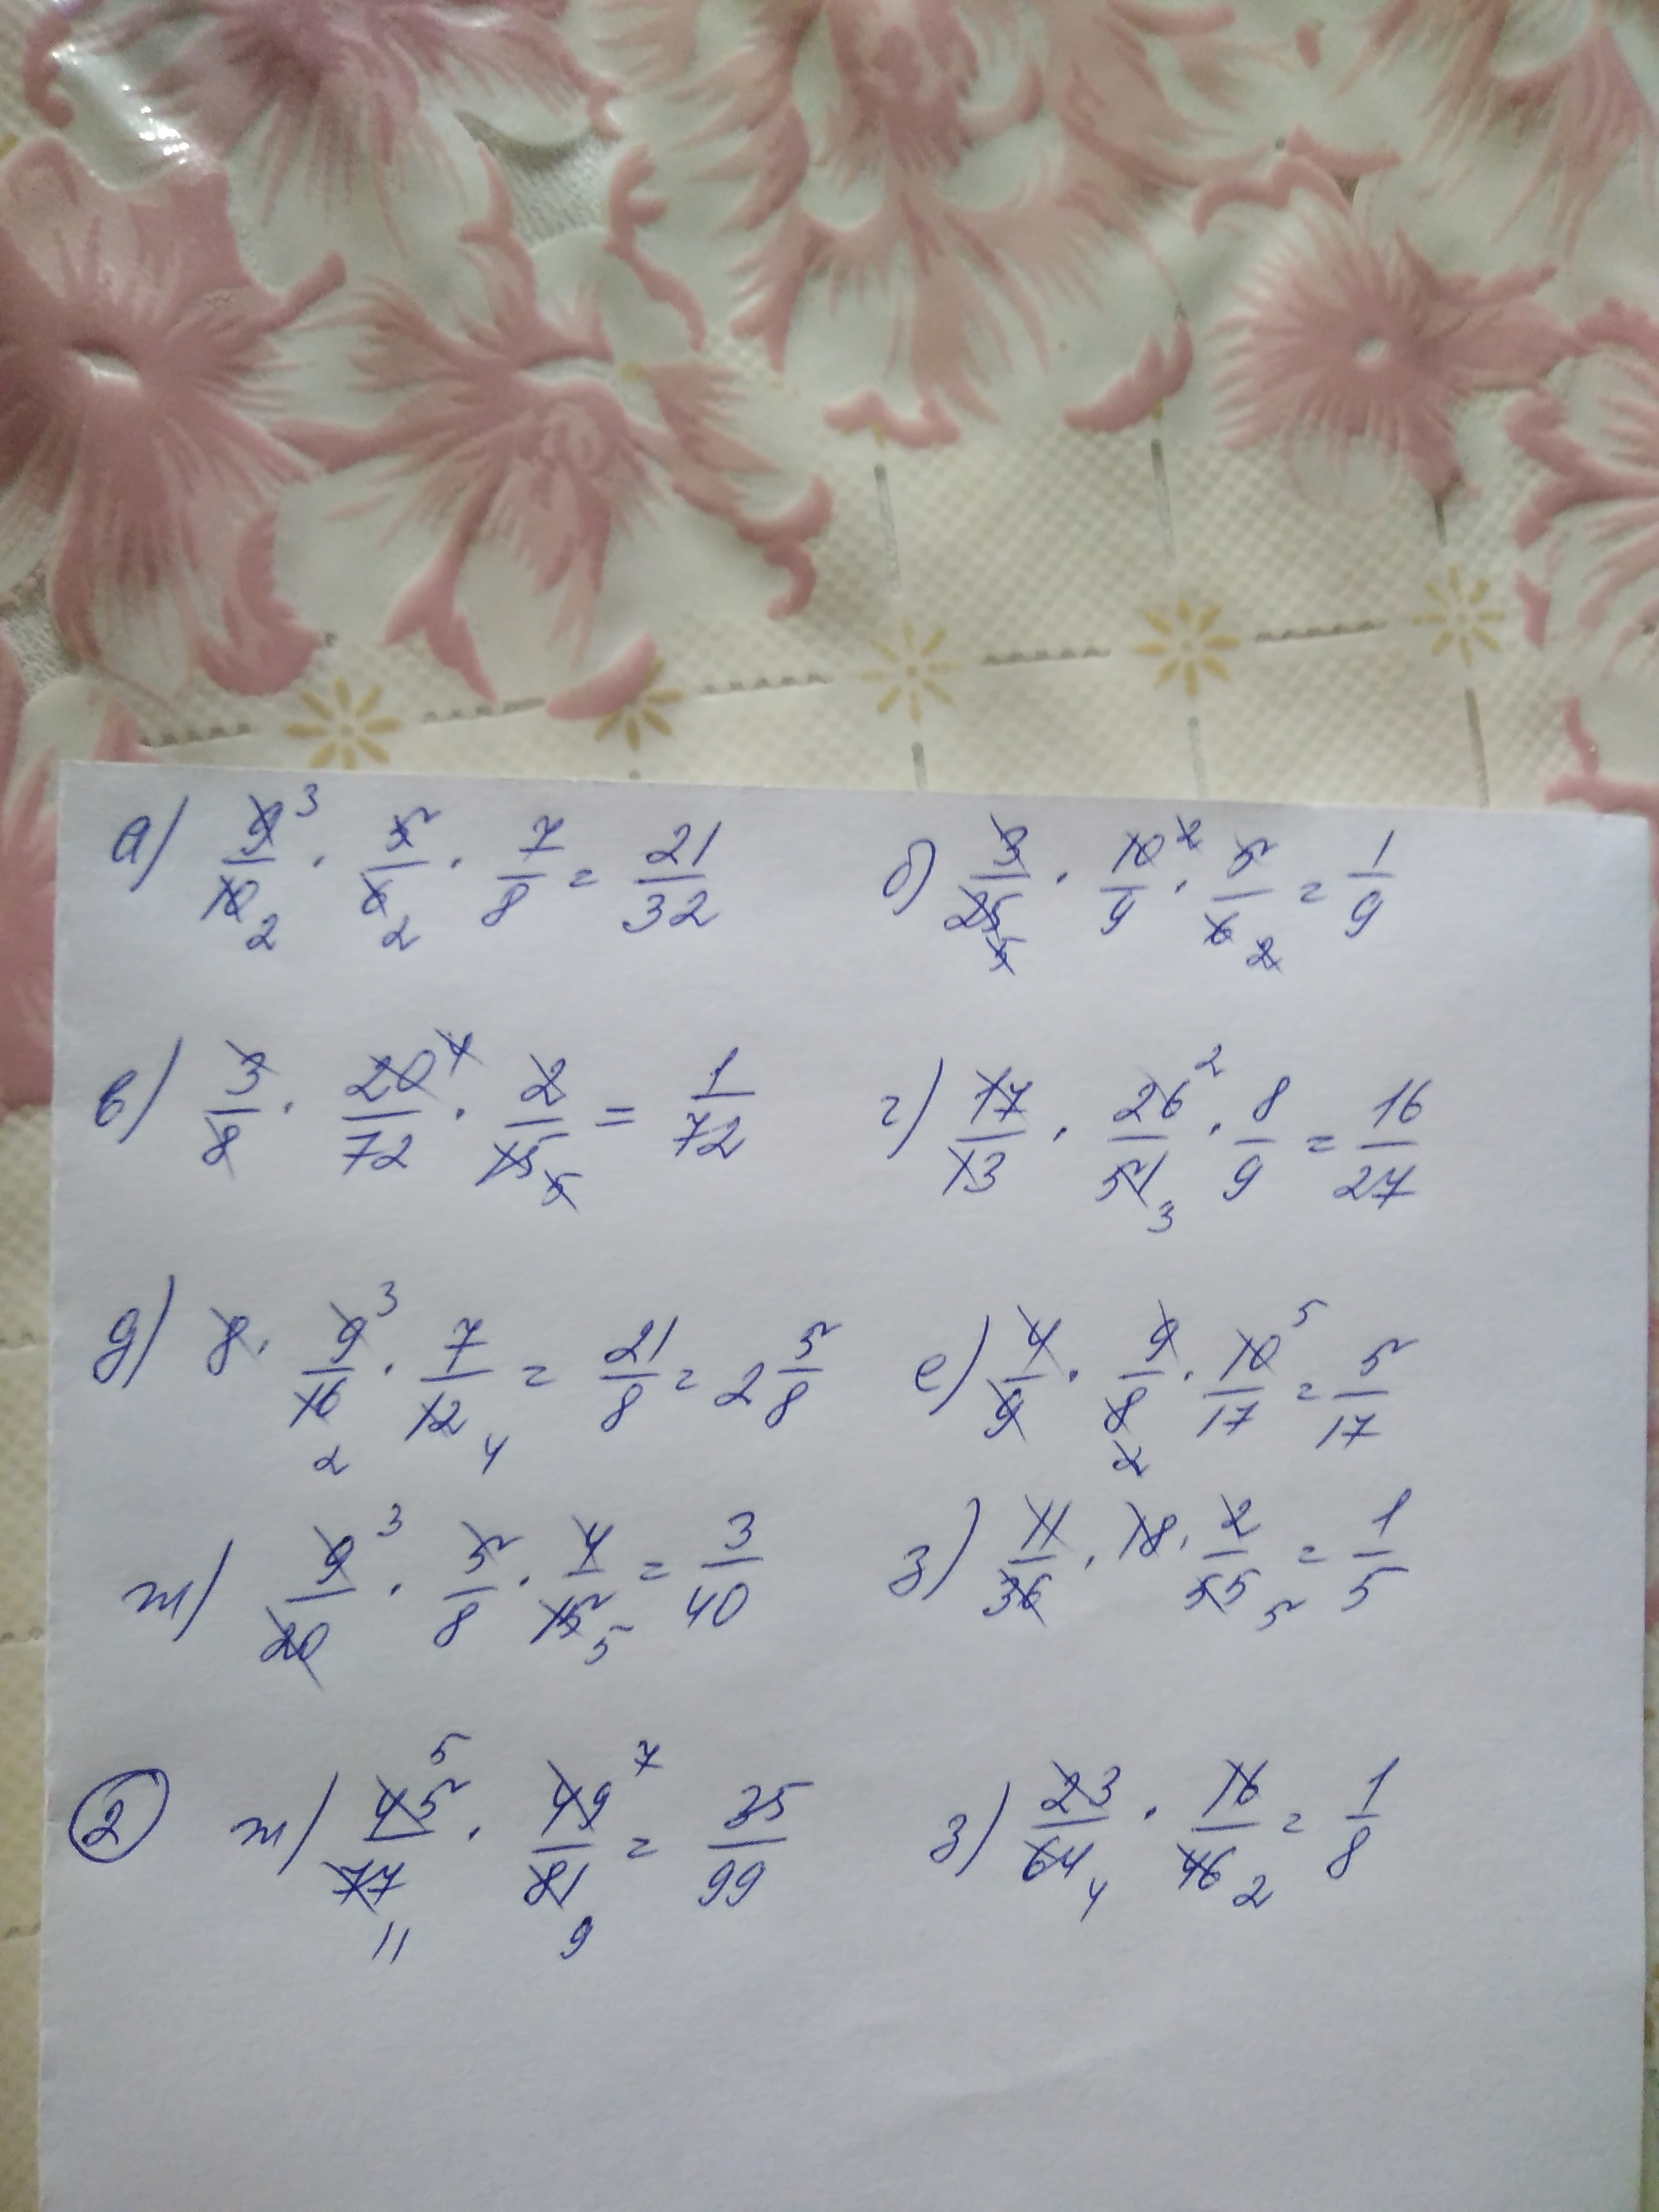 а) 9/10 · 5/6 · 7/8 = 21/32 б) 3/25 · 10/9 · 5/6 = 1/9
в) 3/8 · 20/72 · 2/15 = 1/72 г) 17/13 · 26/51 · 8/9 = 16/27
д) 8 · 9/16 · 7/12 = 21/8 = 2 5/8 е) 4/9 · 9/8 · 10/17 = 5/17
ж) 9/20 · 5/8 · 4/15 = 3/40 з) 11/36 · 18 · 2/55 = 1/5
② ж) 45/77 · 49/81 = 35/99 з) 23/64 · 16/46 = 1/8